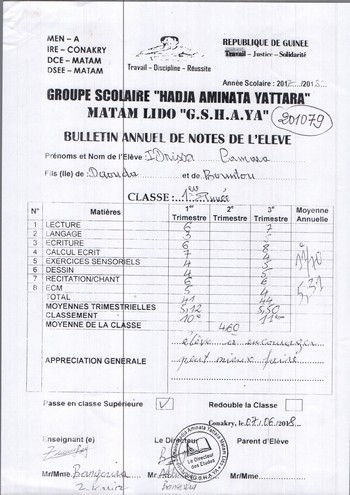 MEN – A
IRE – CONAKRY
DCE – MATAM
DSEE – MATAM
Travail – Discipline – Réussite
REPUBLIQUE DE GUINEE
Travail – Justice – Solidarité
Année Scolaire : 2017 /2018
GROUPE SCOLAIRE "HADJA AMINATA YATTARA"
MATAM LIDO "G.S.H.A.YA"
201079
BULLETIN ANNUEL DE NOTES DE L'ELEVE
Prénoms et Nom de l'Elève : Idrissa Camara
Fils (lle) de : Daouda et de Bountou
CLASSE : 1ère Année
N° Matières 1er Trimestre 2e Trimestre 3e Trimestre Moyenne Annuelle
1 LECTURE 6 7
2 LANGAGE 3
3 ECRITURE 6
4 CALCUL ECRIT 7
5 EXERCICES SENSORIELS 4
6 DESSIN 4 5
7 RECITATION/CHANT 6 6
8 ECM 5 4
TOTAL 41 44
MOYENNES TRIMESTRIELLES 5,12 5,50 5,31
CLASSEMENT 10e 11e
MOYENNE DE LA CLASSE 4,60
APPRECIATION GENERALE
élève à encourager
peut mieux faire
Passe en classe Supérieure Redouble la Classe
Conakry, le 07/06/2018
Enseignant (e) Le Directeur Parent d'Elève
Hadja Aminata Yattara
Le Directeur des Etudes
G.S.H.A.YA
Mr/Mme Bangoura Mr Mr/Mme